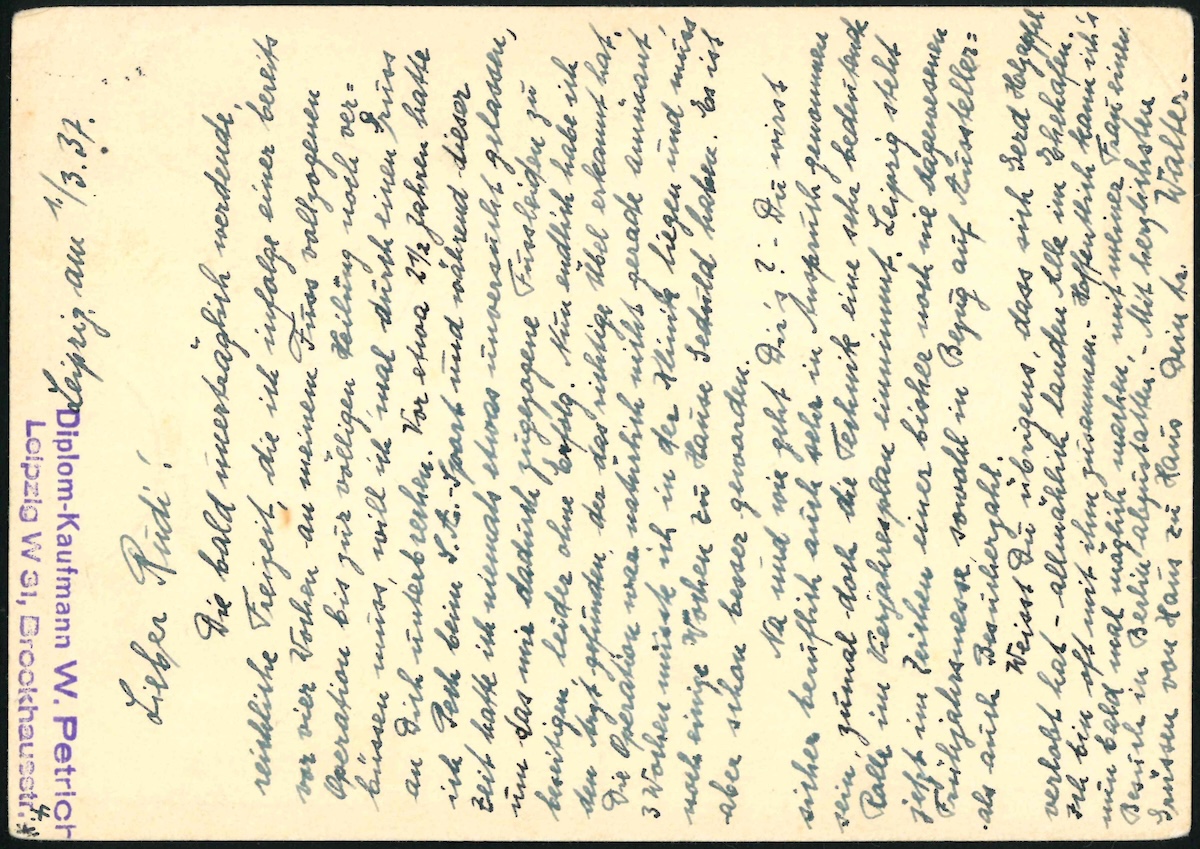 Diplom-Kaufmann W. Petrich
Leipzig W 31, Brockhausstr. 4
Leipzig, am 1./3.37.
Lieber Rudi!
Die bald unerträglich werdende,
reichliche Freizeit, die ich infolge einer bereits
vor vier Wochen an meinem Fuss vollzogenen
Operation bis zur völligen Heilung noch ver=
büssen muss, will ich 'mal durch einen Gruss
an Dich unterbrechen. Vor etwa 2 1/2 Jahren hatte
ich Pech beim S.A.-Sport und während dieser
Zeit hatte ich niemals etwas unversucht gelassen,
um das mir dadurch zugezogene Fussleiden zu
beseitigen, leider ohne Erfolg. Nun endlich habe ich
den Arzt gefunden, der das richtige Übel erkannt hat.
Die Operation war natürlich nicht gerade amüsant
3 Wochen musste ich in der Klinik liegen und muss
noch einige Wochen zu Hause Geduld haben. Es ist
aber schon besser geworden.
Na und wie geht Dir's? - Du wirst
sicher beruflich auch sehr in Anspruch genommen
sein, zumal doch die Technik eine sehr bedeutende
Rolle im Vierjahresplan einnimmt. Leipzig steht
jetzt im Zeichen einer bisher noch nie dagewesenen
Frühjahrsmesse, sowohl in Bezug auf Aussteller=
als auch Besucherzahl.
Weisst Du übrigens, dass sich Gerd
verlobt hat - allmählich landen alle im Ehehafen.
Ich bin oft mit ihm zusammen. Hoffentlich kann ich's
nun bald mal möglich machen, mit meiner Frau einen
Besuch in Berlin abzustatten. - Mit herzlichsten
Grüssen von Haus zu Haus Dein tr. Walter.